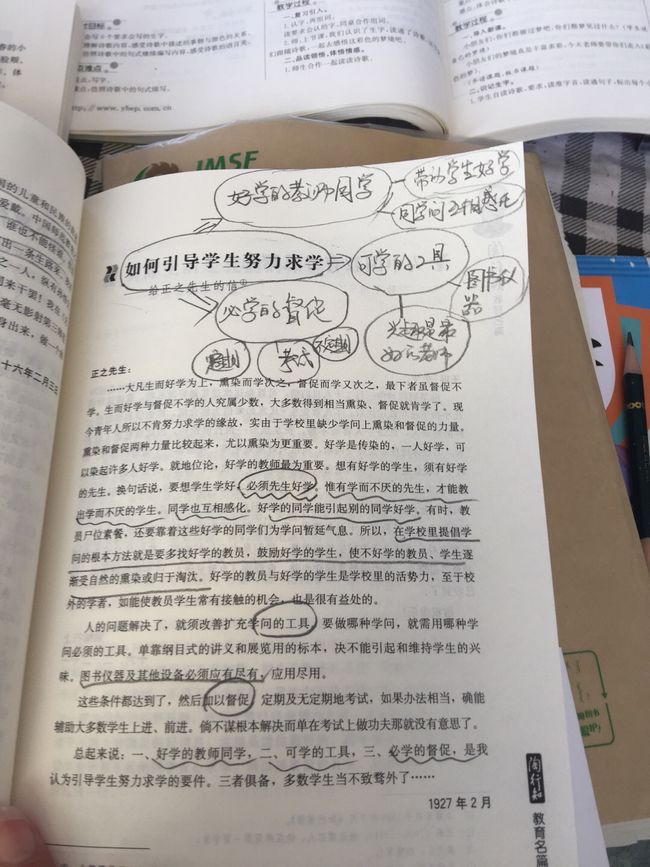 教学过程
一、复习引入。
1. 认字,两词词。
二、品读领悟,体悟情感。
1. 师生合作一起读诗歌。
教学过程
一、导入新课。
二、识记生字。
http://www.yhep.com.cn
JMSE
十六年二月三日
好学的教师同学
带动学生好学
同学间互相感化
如何引导学生努力求学
可学的工具
图书仪器
——给正之先生的信①
必学的督促
定期
考试
不定期
兴趣是最好的老师
正之先生:
……大凡生而好学为上,熏染而学次之,督促而学又次之,最下者虽督促不
学。生而好学与督促不学的人究属少数,大多数得到相当熏染、督促就肯学了。现
今青年人所以不肯努力求学的缘故,实由于学校里缺少学问上熏染和督促的力量。
熏染和督促两种力量比较起来,尤以熏染为更重要。好学是传染的,一人好学,可
以染起许多人好学。就地位论,好学的教师最为重要。想有好学的学生,须有好学
的先生。换句话说,要想学生学好,必须先生好学。惟有学而不厌的先生,才能教
出学而不厌的学生。同学也互相感化。好学的同学能引起别的同学好学。有时,教
员尸位素餐,还要靠着这些好学的同学们为学问暂延气息。所以,在学校里提倡学
问的根本方法就是要多找好学的教员,鼓励好学的学生,使不好学的教员、学生逐
渐受自然的熏染或归于淘汰。好学的教员与好学的学生是学校里的活势力,至于校
外的学者,如能使教员学生常有接触的机会,也是很有益处的。
人的问题解决了,就须改善扩充学问的工具。要做哪种学问,就需用哪种学
问必须的工具。单靠纲目式的讲义和展览用的标本,决不能引起和维持学生的兴
味。图书仪器及其他设备必须应有尽有,应用尽用。
这些条件都达到了,然后加以督促,定期及无定期地考试,如果办法相当,确能
辅助大多数学生上进、前进。倘不谋根本解决而单在考试上做功夫那就没有意思了。
总起来说:一、好学的教师同学,二、可学的工具,三、必学的督促,是我
认为引导学生努力求学的要件。三者俱备,多数学生当不致骛外了……
1927年2月
陶行知
教育名篇